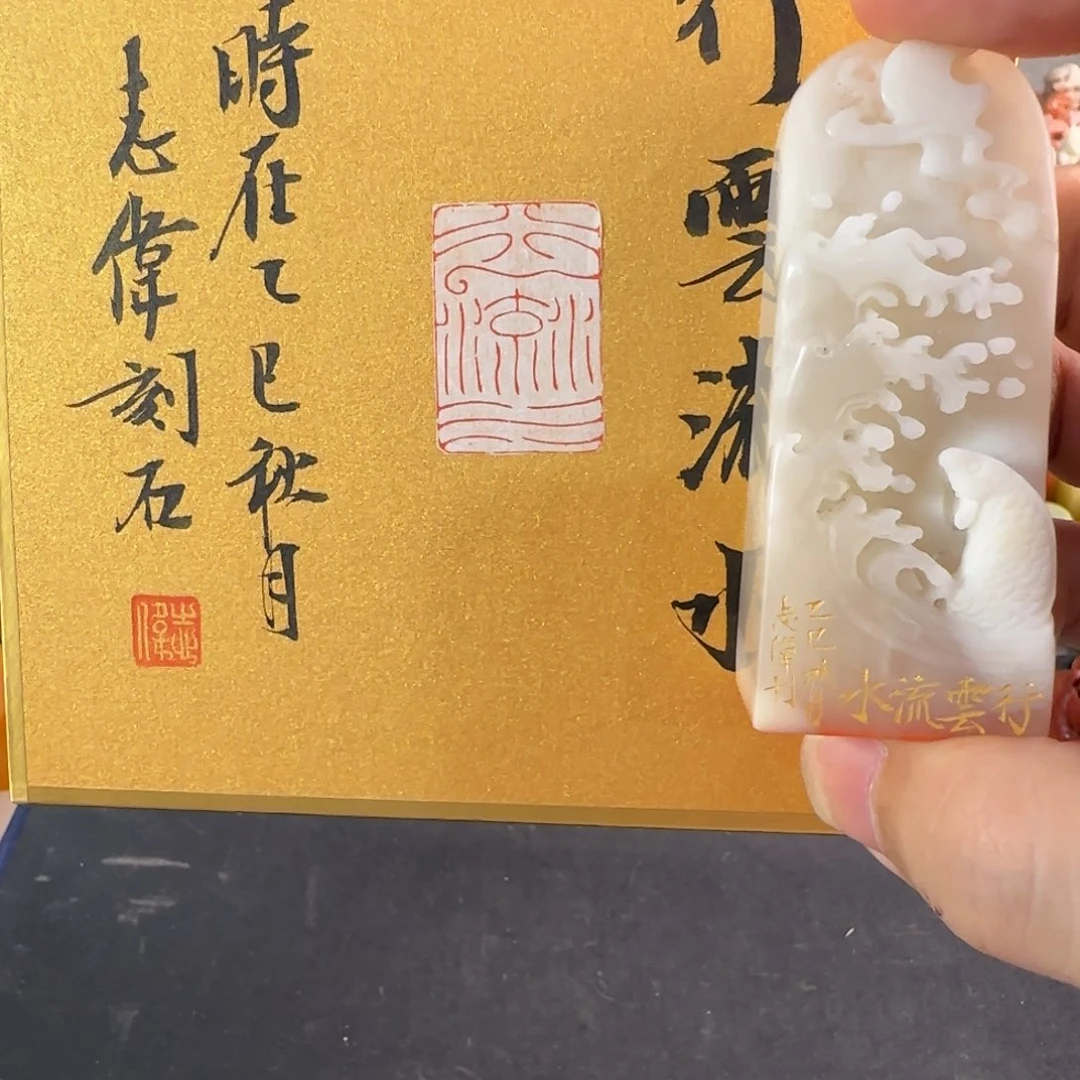 行雲流水
時在乙巳秋月
志偉刻石
志偉
行雲流水
乙巳
志偉刊